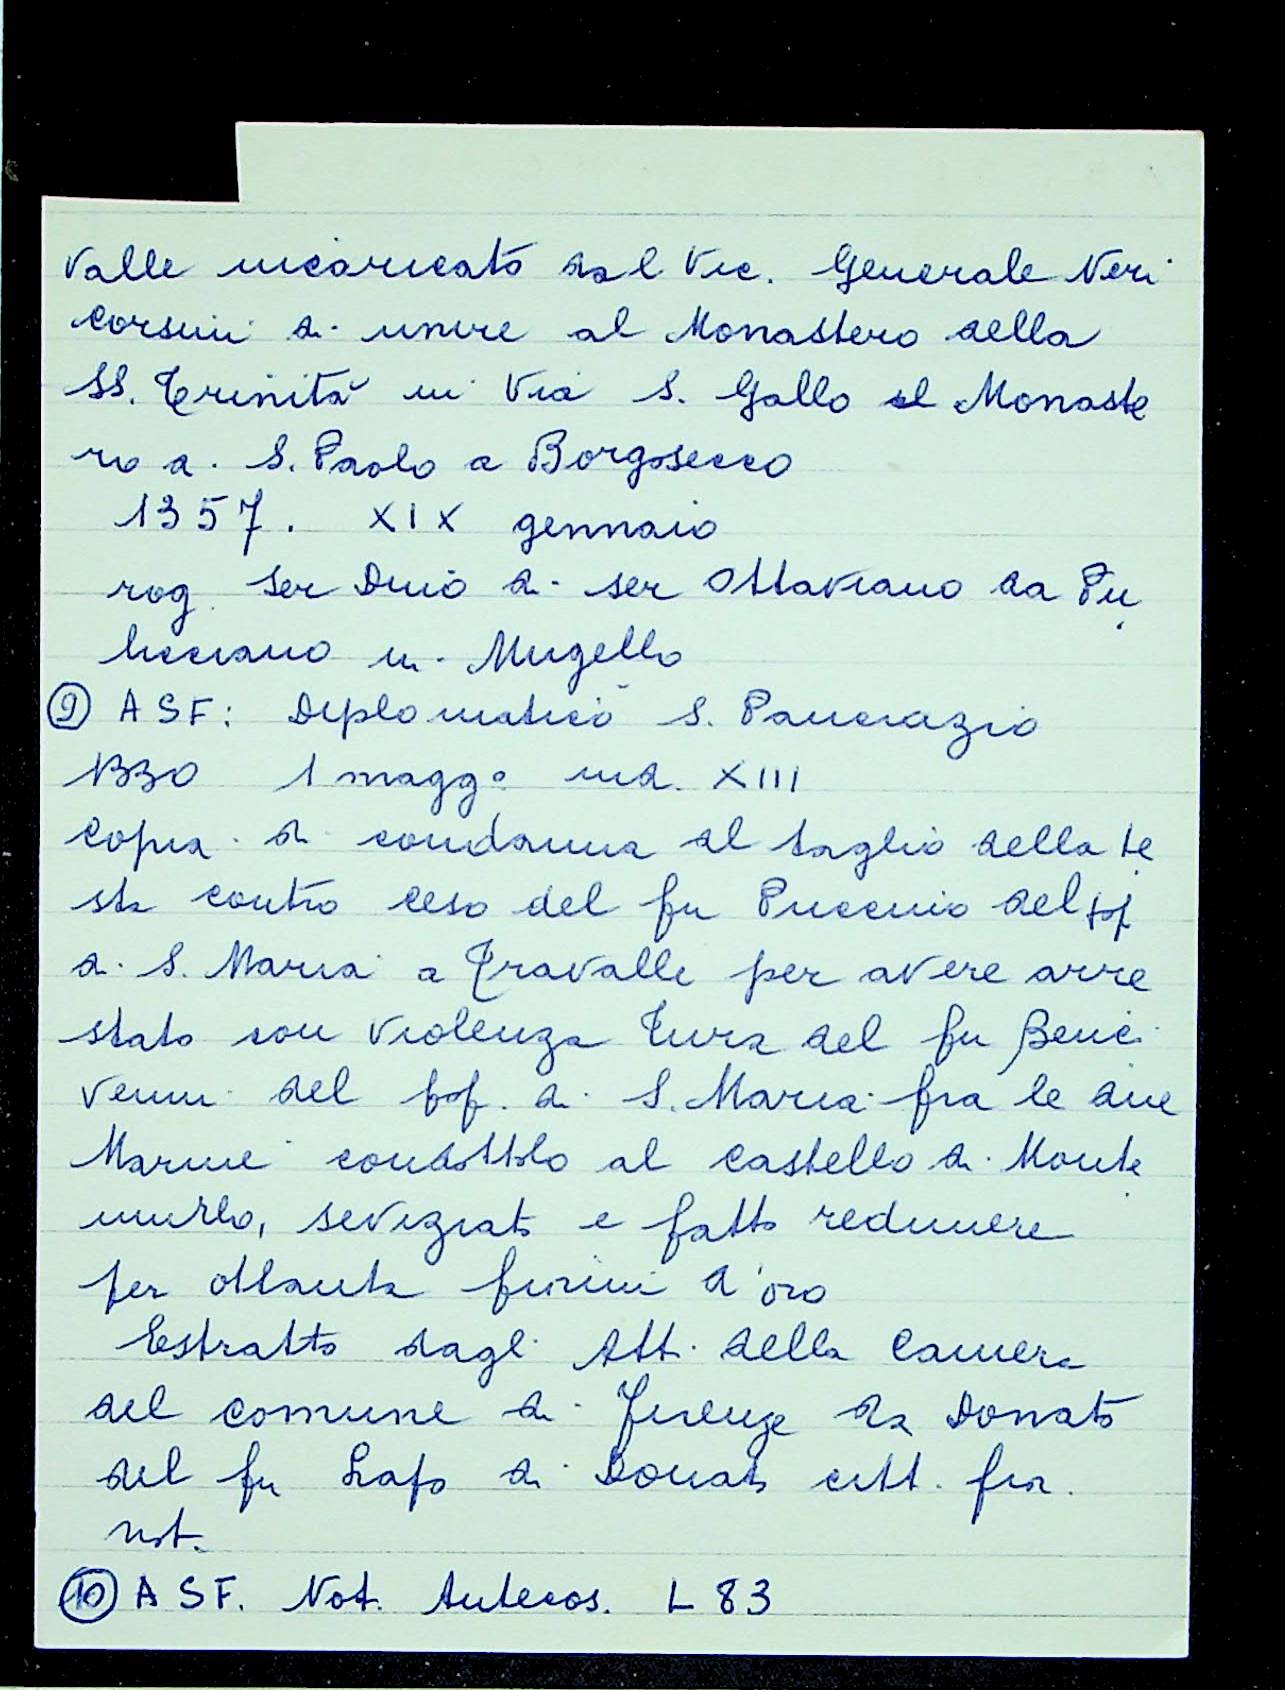 Valle incaricato dal Vic. Generale Neri
Corsini di unire al Monastero della
SS. Trinità in Via S. Gallo il Monaste
ro di S. Paolo a Borgosecco
1357. XIX gennaio
rog. ser Dino di ser Ottaviano da Pu
licciano in Mugello
(9) ASF: Diplomatico S. Pancrazio
1330 1 magg° ind. XIII
Copia di condanna al taglio della te
sta contro Ceso del fu Puccino del pop
di S. Maria a Travalle per avere arre
stato con violenza Tura del fu Benci
venni del pop. di S. Maria fra le due
Marine condottolo al castello di Monte
murlo, seviziato e fatto redimere
per ottanta fiorini d'oro
Estratto dagli Atti della Camera
del comune di Firenze da Donato
del fu Lapo di Donato citt. fior.
not.
(10) ASF. Not. Antecos. L 83